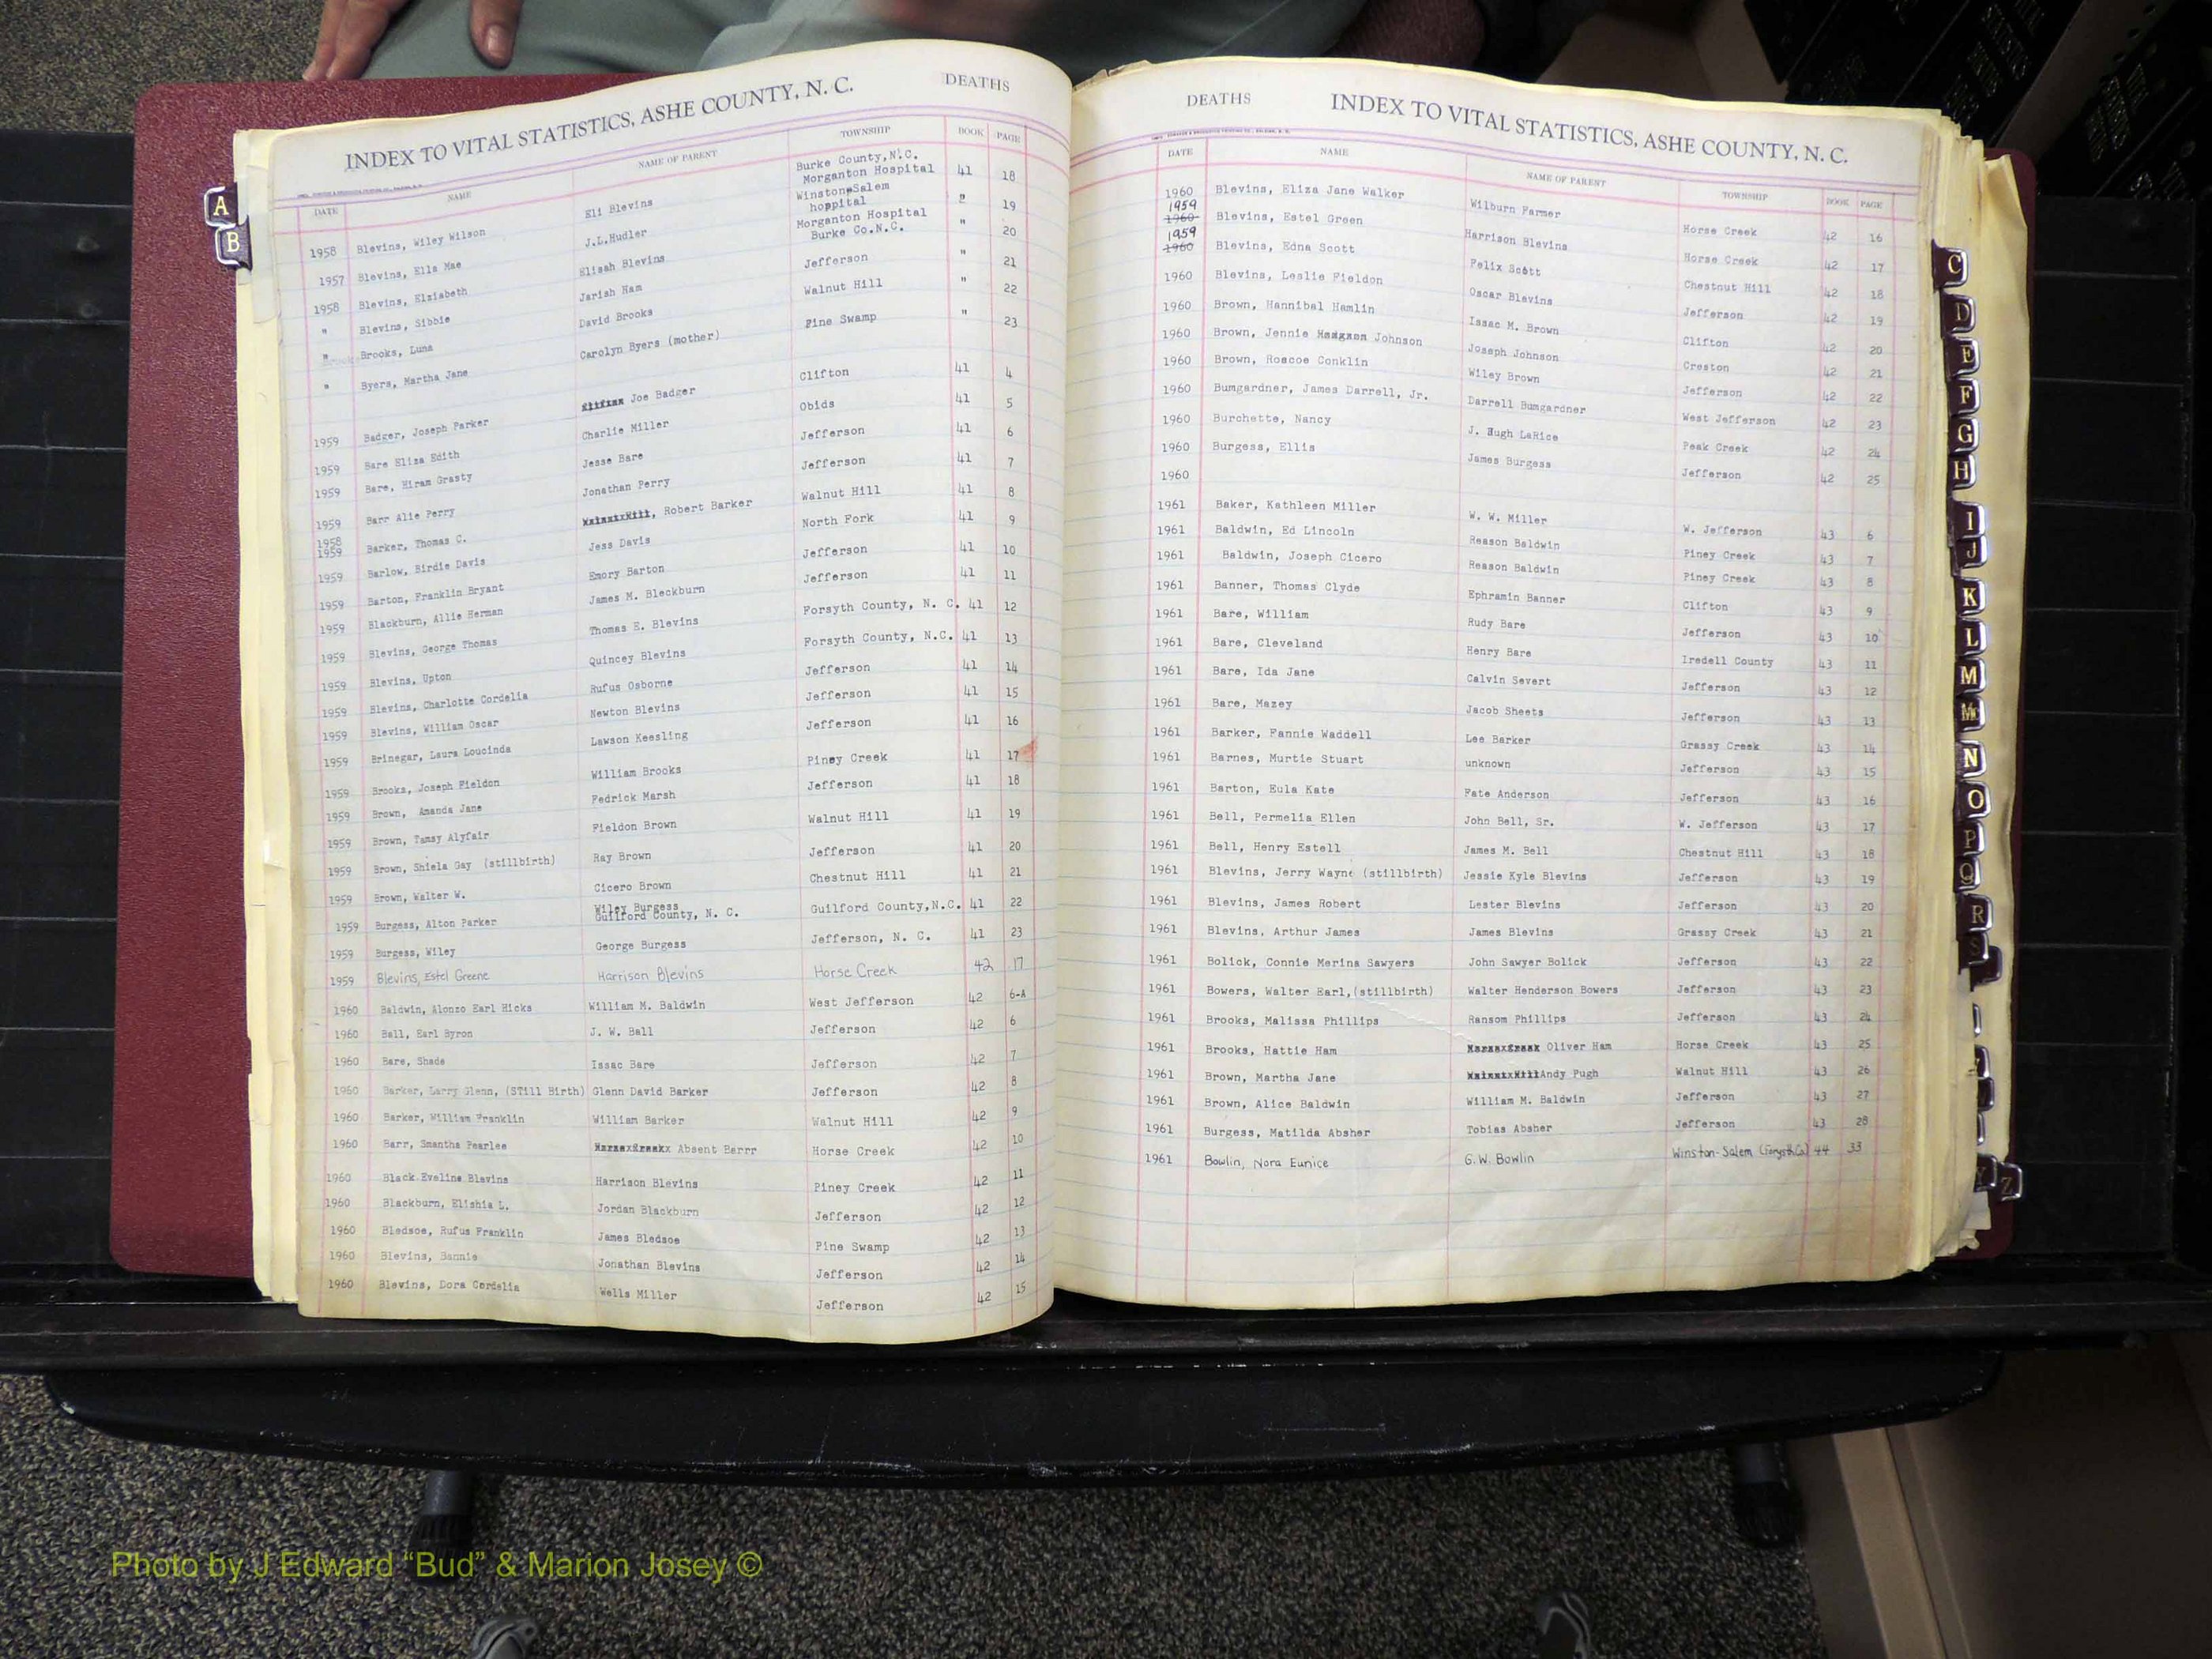 INDEX TO VITAL STATISTICS, ASHE COUNTY, N. C. DEATHS
DATE NAME NAME OF PARENT TOWNSHIP BOOK PAGE
A
B
1958 Blevins, Wiley Wilson Eli Blevins Burke County, N.C. Morganton Hospital 41 18
1957 Blevins, Ella Mae J.L.Hudler Winston-Salem hoppital " 19
1958 Blevins, Elziabeth Elisah Blevins Morganton Hospital Burke Co.N.C. " 20
" Blevins, Sibbie Jariah Ham Jefferson " 21
" Brooks, Luna David Brooks Walnut Hill " 22
" Byers, Martha Jane Carolyn Byers (mother) Pine Swamp " 23
1959 Badger, Joseph Parker Joe Badger Clifton 41 4
1959 Bare Eliza Edith Charlie Miller Obids 41 5
1959 Bare, Hiram Grasty Jesse Bare Jefferson 41 6
1959 Barr Alie Perry Jonathan Perry Jefferson 41 7
1958 1959 Barker, Thomas C. , Robert Barker Walnut Hill 41 8
1959 Barlow, Birdie Davis Jess Davis North Fork 41 9
1959 Barton, Franklin Bryant Emory Barton Jefferson 41 10
1959 Blackburn, Allie Herman James M. Bleckburn Jefferson 41 11
1959 Blevins, George Thomas Thomas E. Blevins Forsyth County, N. C. 41 12
1959 Blevins, Upton Quincey Blevins Forsyth County, N.C. 41 13
1959 Blevins, Charlotte Cordelia Rufus Osborne Jefferson 41 14
1959 Blevins, William Oscar Newton Blevins Jefferson 41 15
1959 Brinegar, Laura Loucinda Lawson Keesling Jefferson 41 16
1959 Brooks, Joseph Fieldon William Brooks Piney Creek 41 17
1959 Brown, Amanda Jane Fedrick Marsh Jefferson 41 18
1959 Brown, Tamsy Alyfair Fieldon Brown Walnut Hill 41 19
1959 Brown, Shiela Gay (stillbirth) Ray Brown Jefferson 41 20
1959 Brown, Walter W. Cicero Brown Chestnut Hill 41 21
1959 Burgess, Alton Parker Wiley Burgess Guilford County, N. C. Guilford County,N.C. 41 22
1959 Burgess, Wiley George Burgess Jefferson, N. C. 41 23
1959 Blevins, Estel Greene Harrison Blevins Horse Creek 42 17
1960 Baldwin, Alonzo Earl Hicks William M. Baldwin West Jefferson 42 6-A
1960 Ball, Earl Byron J. W. Ball Jefferson 42 6
1960 Bare, Shade Issac Bare Jefferson 42 7
1960 Barker, Larry Glenn, (STill Birth) Glenn David Barker Jefferson 42 8
1960 Barker, William Franklin William Barker Walnut Hill 42 9
1960 Barr, Smantha Pearlee Absent Barrr Horse Creek 42 10
1960 Black.Eveline Blevins Harrison Blevins Piney Creek 42 11
1960 Blackburn, Elishia L. Jordan Blackburn Jefferson 42 12
1960 Bledsoe, Rufus Franklin James Bledsoe Pine Swamp 42 13
1960 Blevins, Bannie Jonathan Blevins Jefferson 42 14
1960 Blevins, Dora Cordelia Wells Miller Jefferson 42 15
DEATHS INDEX TO VITAL STATISTICS, ASHE COUNTY, N. C.
DATE NAME NAME OF PARENT TOWNSHIP BOOK PAGE
1960 Blevins, Eliza Jane Walker Wilburn Farmer Horse Creek 42 16
1959 1960 Blevins, Estel Green Harrison Blevins Horse Creek 42 17
1959 1960 Blevins, Edna Scott Felix Scott Chestnut Hill 42 18
1960 Blevins, Leslie Fieldon Oscar Blevins Jefferson 42 19
1960 Brown, Hannibal Hamlin Issac M. Brown Clifton 42 20
1960 Brown, Jennie Johnson Joseph Johnson Creston 42 21
1960 Brown, Roscoe Conklin Wiley Brown Jefferson 42 22
1960 Bumgardner, James Darrell, Jr. Darrell Bumgardner West Jefferson 42 23
1960 Burchette, Nancy J. Hugh LaRice Peak Creek 42 24
1960 Burgess, Ellis James Burgess Jefferson 42 25
1960
1961 Baker, Kathleen Miller W. W. Miller W. Jefferson 43 6
1961 Baldwin, Ed Lincoln Reason Baldwin Piney Creek 43 7
1961 Baldwin, Joseph Cicero Reason Baldwin Piney Creek 43 8
1961 Banner, Thomas Clyde Ephramin Banner Clifton 43 9
1961 Bare, William Rudy Bare Jefferson 43 10
1961 Bare, Cleveland Henry Bare Iredell County 43 11
1961 Bare, Ida Jane Calvin Severt Jefferson 43 12
1961 Bare, Mazey Jacob Sheets Jefferson 43 13
1961 Barker, Fannie Waddell Lee Barker Grassy Creek 43 14
1961 Barnes, Murtie Stuart unknown Jefferson 43 15
1961 Barton, Eula Kate Fate Anderson Jefferson 43 16
1961 Bell, Permelia Ellen John Bell, Sr. W. Jefferson 43 17
1961 Bell, Henry Estell James M. Bell Chestnut Hill 43 18
1961 Blevins, Jerry Wayne (stillbirth) Jessie Kyle Blevins Jefferson 43 19
1961 Blevins, James Robert Lester Blevins Jefferson 43 20
1961 Blevins, Arthur James James Blevins Grassy Creek 43 21
1961 Bolick, Connie Merina Sawyers John Sawyer Bolick Jefferson 43 22
1961 Bowers, Walter Earl,(stillbirth) Walter Henderson Bowers Jefferson 43 23
1961 Brooks, Malissa Phillips Ransom Phillips Jefferson 43 24
1961 Brooks, Hattie Ham Oliver Ham Horse Creek 43 25
1961 Brown, Martha Jane Andy Pugh Walnut Hill 43 26
1961 Brown, Alice Baldwin William M. Baldwin Jefferson 43 27
1961 Burgess, Matilda Absher Tobias Absher Jefferson 43 28
1961 Bowlin, Nora Eunice G.W. Bowlin Winston-Salem (Forysth Co) 44 33
C
D
E
F
G
H
I
J
K
L
M
Mc
N
O
P
Q
R
S
Y
Z
Photo by J Edward “Bud” & Marion Josey ©